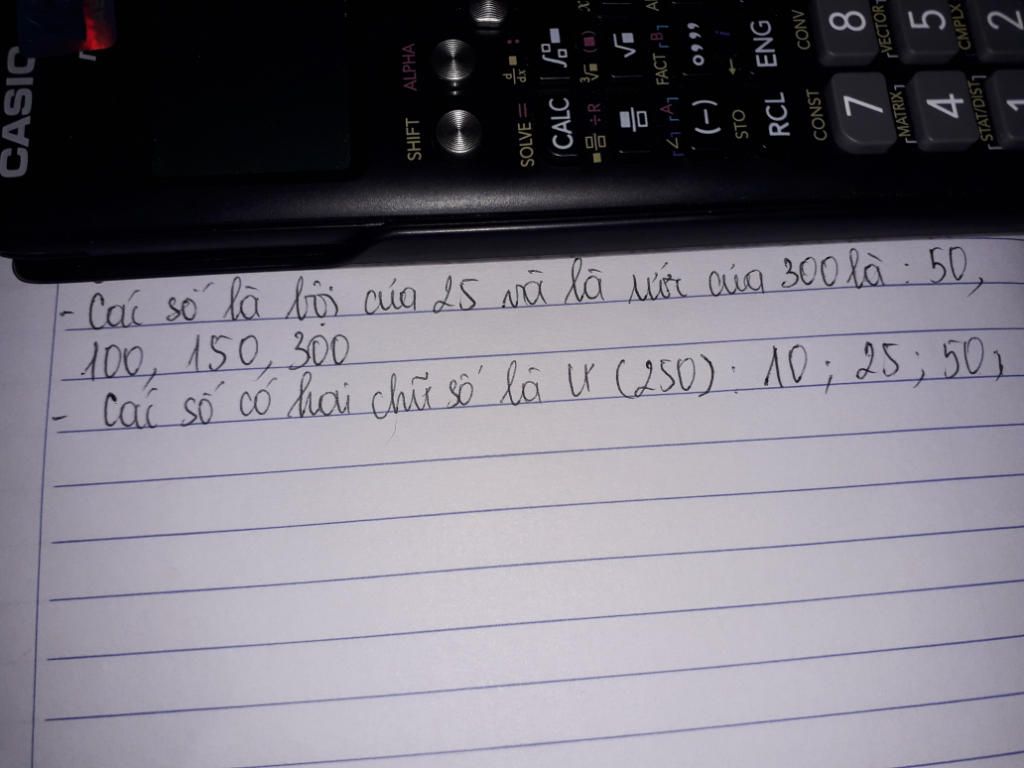 CASIO
SHIFT ALPHA
SOLVE = d/dx :
CALC
÷R
FACT
(-)
STO
RCL ENG
CONST CONV
7 8
MATRIX VECTOR
4 5
STAT/DIST CMPLX
1 2
- Các số là bội của 25 và là ước của 300 là : 50,
100, 150, 300
- Các số có hai chữ số là Ư (250) : 10 ; 25 ; 50 ;